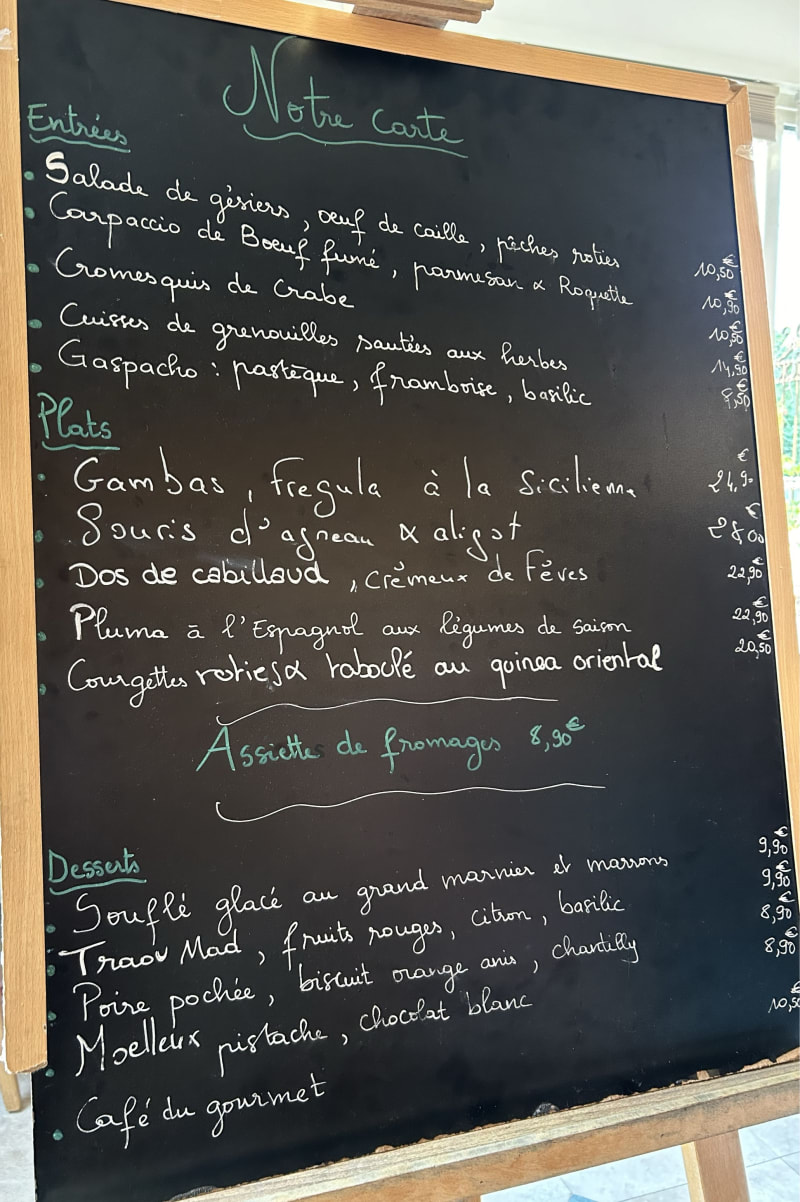 Notre carte
Entrées
Salade de gésiers, œuf de caille, pêches roties 10,50€
Carpaccio de Bœuf fumé, parmesan & Roquette 10,90€
Cromesquis de Crabe 10,90€
Cuisses de grenouilles sautées aux herbes 14,90€
Gaspacho : pastèque, framboise, basilic 8,50€
Plats
Gambas, Fregula à la Sicilienne 24,90€
Souris d'agneau & aligot 28,00€
Dos de cabillaud, crémeux de Fèves 22,90€
Pluma à l'Espagnol aux légumes de saison 22,90€
Courgettes roties & taboulé au quinoa oriental 20,50€
Assiettes de fromages 8,90€
Desserts
Soufflé glacé au grand marnier et marrons 9,90€
Traou Mad, fruits rouges, citron, basilic 9,90€
Poire pochée, biscuit orange anis, chantilly 8,90€
Moelleux pistache, chocolat blanc 8,90€
Café du gourmet 10,50€